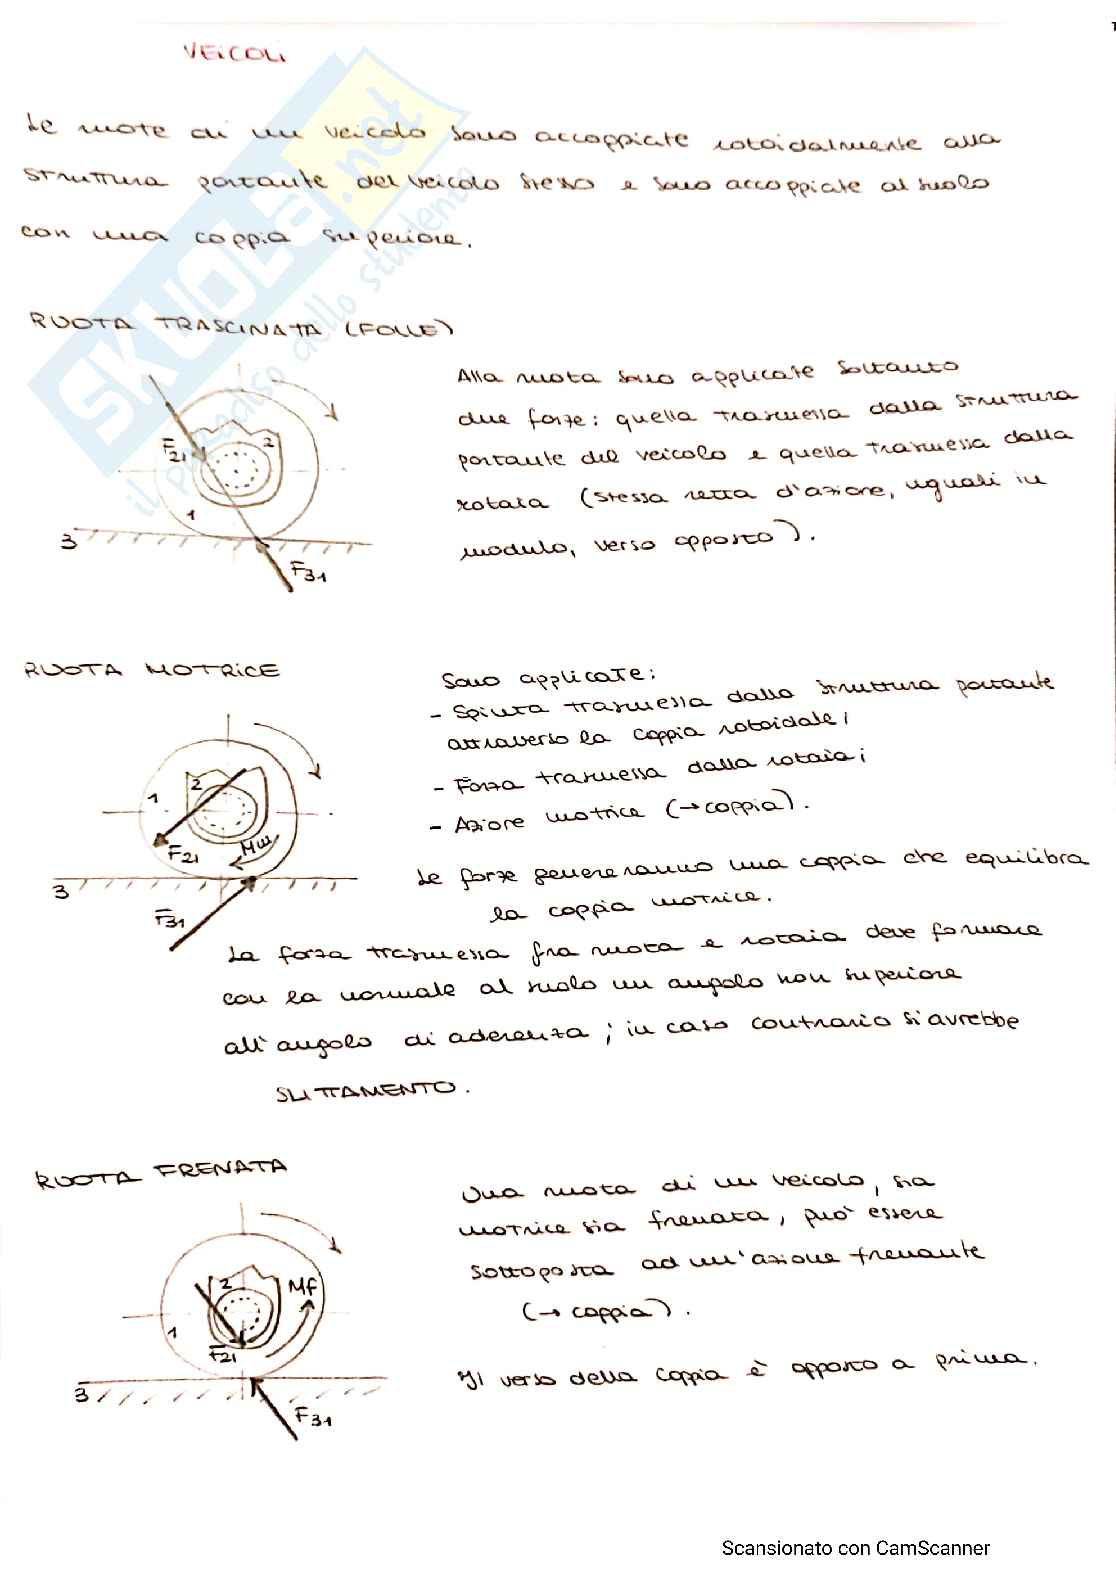 VEICOLI
Le ruote di un veicolo sono accoppiate rotoidalmente alla
struttura portante del veicolo stesso e sono accoppiate al suolo
con una coppia superiore.
RUOTA TRASCINATA (FOLLE)
Alla ruota sono applicate soltanto
due forze: quella trasmessa dalla struttura
portante del veicolo e quella trasmessa dalla
rotaia (stessa retta d'azione, uguali in
modulo, verso opposto).
F21
2
1
3
F31
RUOTA MOTRICE
Sono applicate:
- Spinta trasmessa dalla struttura portante
attraverso la coppia rotoidale;
- Forza trasmessa dalla rotaia;
- Azione motrice (→ coppia).
Le forze genereranno una coppia che equilibra
la coppia motrice.
1
2
F21
Mm
3
F31
La forza trasmessa fra ruota e rotaia deve formare
con la normale al suolo un angolo non superiore
all'angolo di aderenza; in caso contrario si avrebbe
SLITTAMENTO.
RUOTA FRENATA
Una ruota di un veicolo, sia
motrice sia frenata, può essere
sottoposta ad un'azione frenante
(→ coppia).
Il verso della coppia è opposto a prima.
2
Mf
1
F21
3
F31
SKUOLA.net
il paradiso dello studente
Scansionato con CamScanner